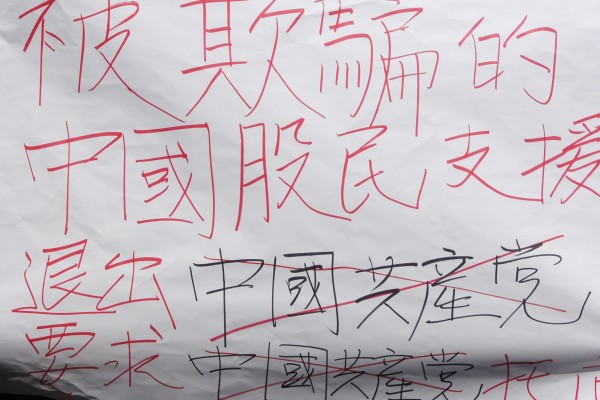 被欺騙的
中國股民支援
退出中國共產党
要求中國共產党